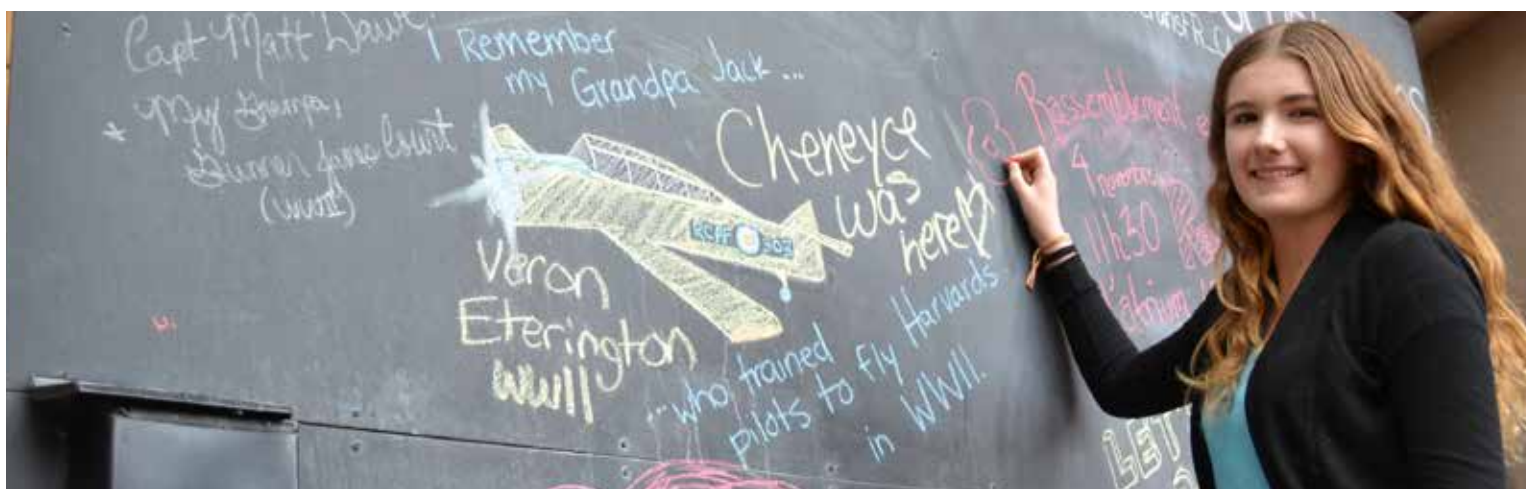 Capt Matt
* My Grampa,
Gunner James
(WWII)
I Remember
my Grandpa Jack ...
RCAF 302
Cheneyce
was
here♡
Veron
Eterington
WWII
...who trained
pilots to fly Harvards
in WWII.
Rassemblement
4 novembre
11h30
LET